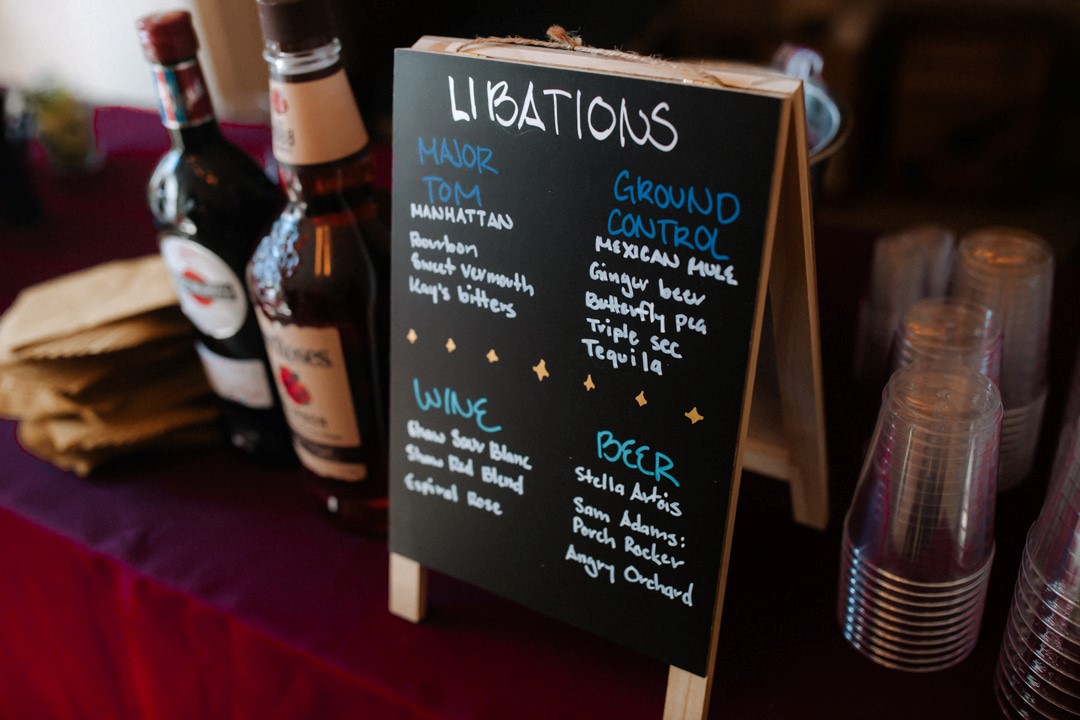 LIBATIONS
MAJOR
TOM
MANHATTAN
Bourbon
Sweet Vermouth
Kay's bitters
GROUND
CONTROL
MEXICAN MULE
Ginger beer
Butterfly pea
Triple sec
Tequila
WINE
Shaw Sauv Blanc
Shaw Red Blend
Espinal Rose
BEER
Stella Artois
Sam Adams:
Porch Rocker
Angry Orchard
Roses